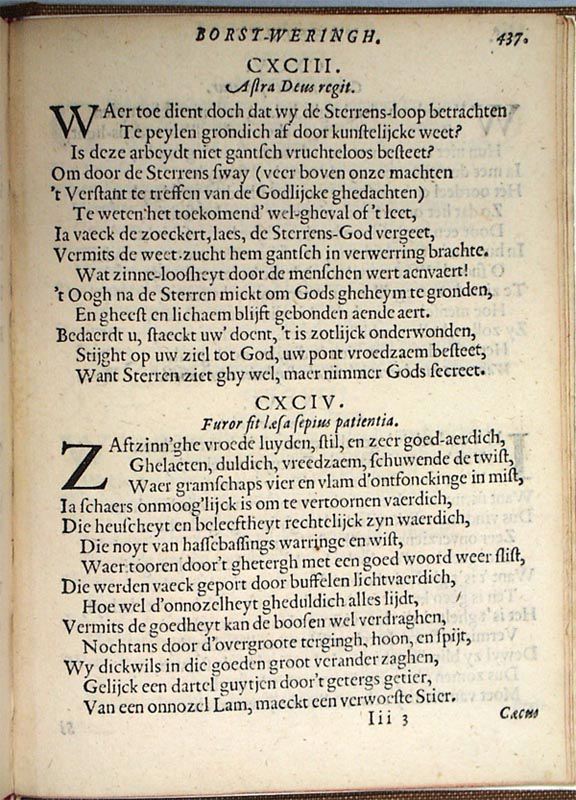 BORST-WERINGH. 437.
CXCIII.
Astra Deus regit.
WAer toe dient doch dat wy de Sterrens-loop betrachten
Te peylen grondich af door kunstelijcke weet?
Is deze arbeydt niet gantsch vruchteloos besteet?
Om door de Sterrens sway (veer boven onze machten
't Verstant te treffen van de Godlijcke ghedachten)
Te weten'het toekomend' wel-gheval of 't leet,
Ia vaeck de zoeckert, laes, de Sterrens-God vergeet,
Vermits de weet-zucht hem gantsch in verwerring brachte.
Wat zinne-loosheyt door de menschen wert aenvaert!
't Oogh na de Sterren mickt om Gods gheheym te gronden,
En gheest en lichaem blijft gebonden aende aert.
Bedaerdt u, staeckt uw' doent, 't is zotlijck onderwonden,
Stijght op uw ziel tot God, uw pont vroedzaem besteet,
Want Sterren ziet ghy wel, maer nimmer Gods secreet.
CXCIV.
Furor fit læsa sepius patientia.
ZAftzinn'ghe vroede luyden, stil, en zeer goed-aerdich,
Ghelaeten, duldich, vreedzaem, schuwende de twist,
Waer gramschaps vier en vlam d'ontfonckinge in mist,
Ia schaers onmoog'lijck is om te vertoornen vaerdich,
Die heuscheyt en beleeftheyt rechtelijck zyn waerdich,
Die noyt van hassebassings warringe en wist,
Waer tooren door't ghetergh met een goed woord weer slist,
Die werden vaeck geport door buffelen lichtvaerdich,
Hoe wel d'onnozelheyt gheduldich alles lijdt,
Vermits de goedheyt kan de boosen wel verdraghen,
Nochtans door d'overgroote tergingh, hoon, en spijt,
Wy dickwils in die goeden groot verander zaghen,
Gelijck een dartel guytjen door't getergs getier,
Van een onnozel Lam, maeckt een verwoeste Stier.
Iii 3 Cæcus